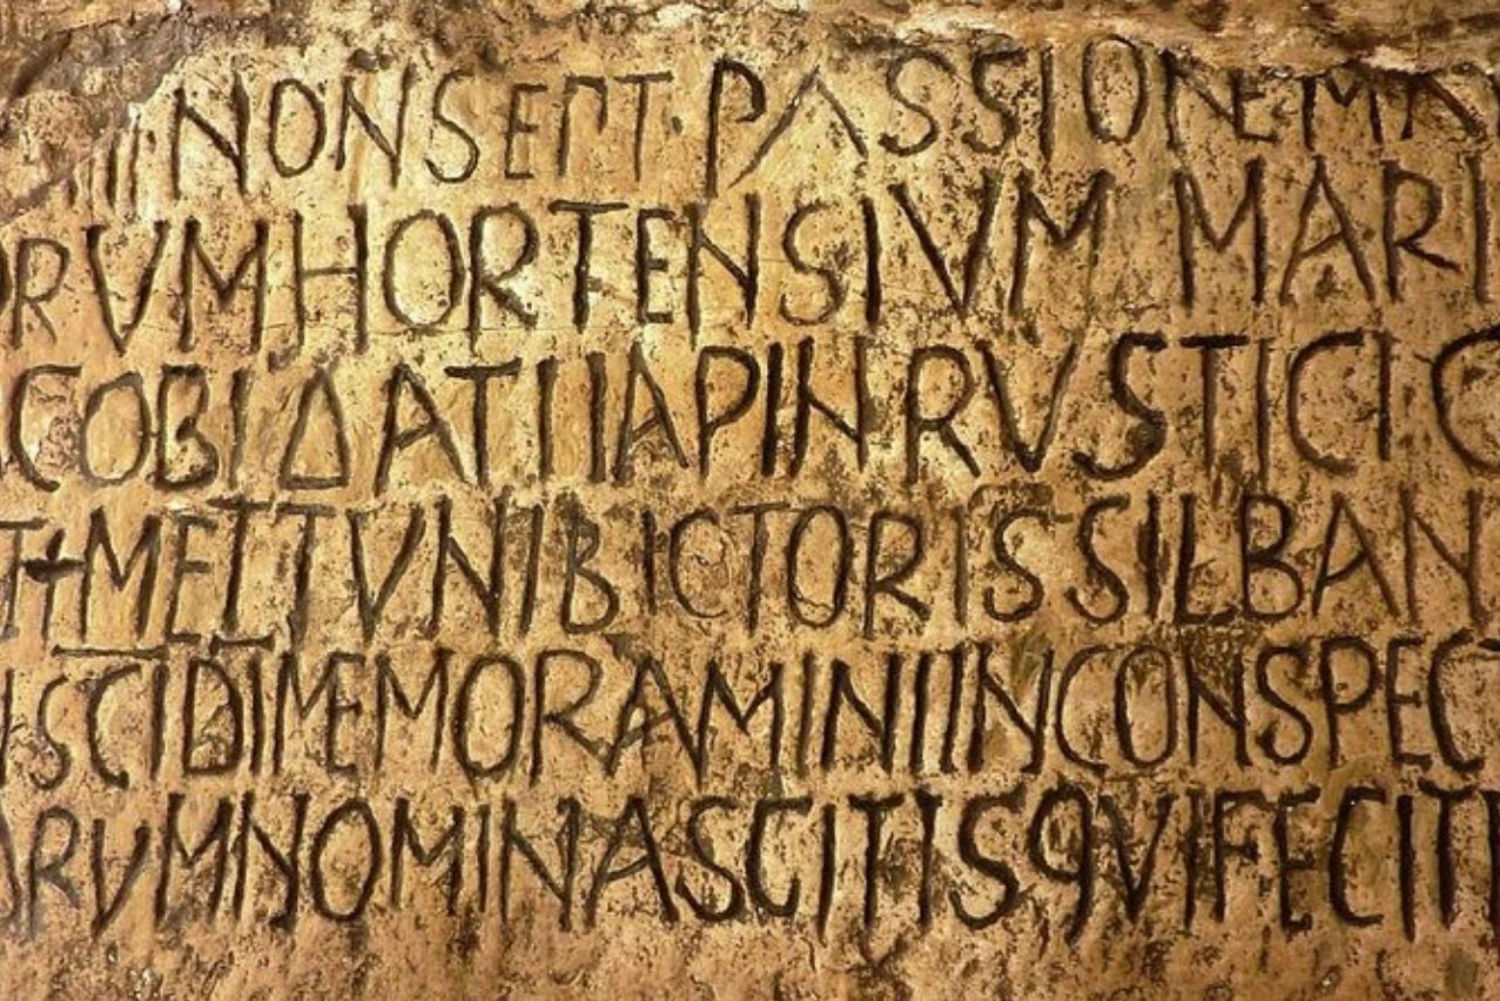 IIII NON SEPT · PASSIONEM
RVM HORTENSIVM MARI
COBI DATII IAPIN RVSTICI
T+ METTVNI BICTORIS SILBAN
SCTI DI MEMORAMINI IN CONSPECT
ARVM NOMINA SCIT IS QVI FECIT